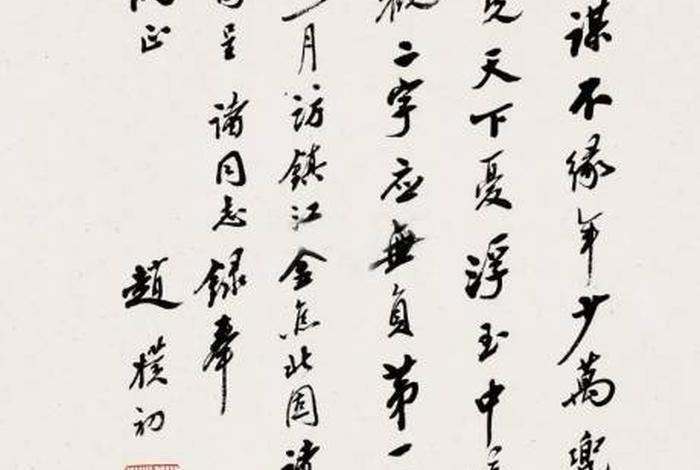 謀不緣年少萬兜
天下憂浮玉中
二字應無負第一
月訪鎮江金焦北固諸
呈諸同志錄奉
正
趙樸初